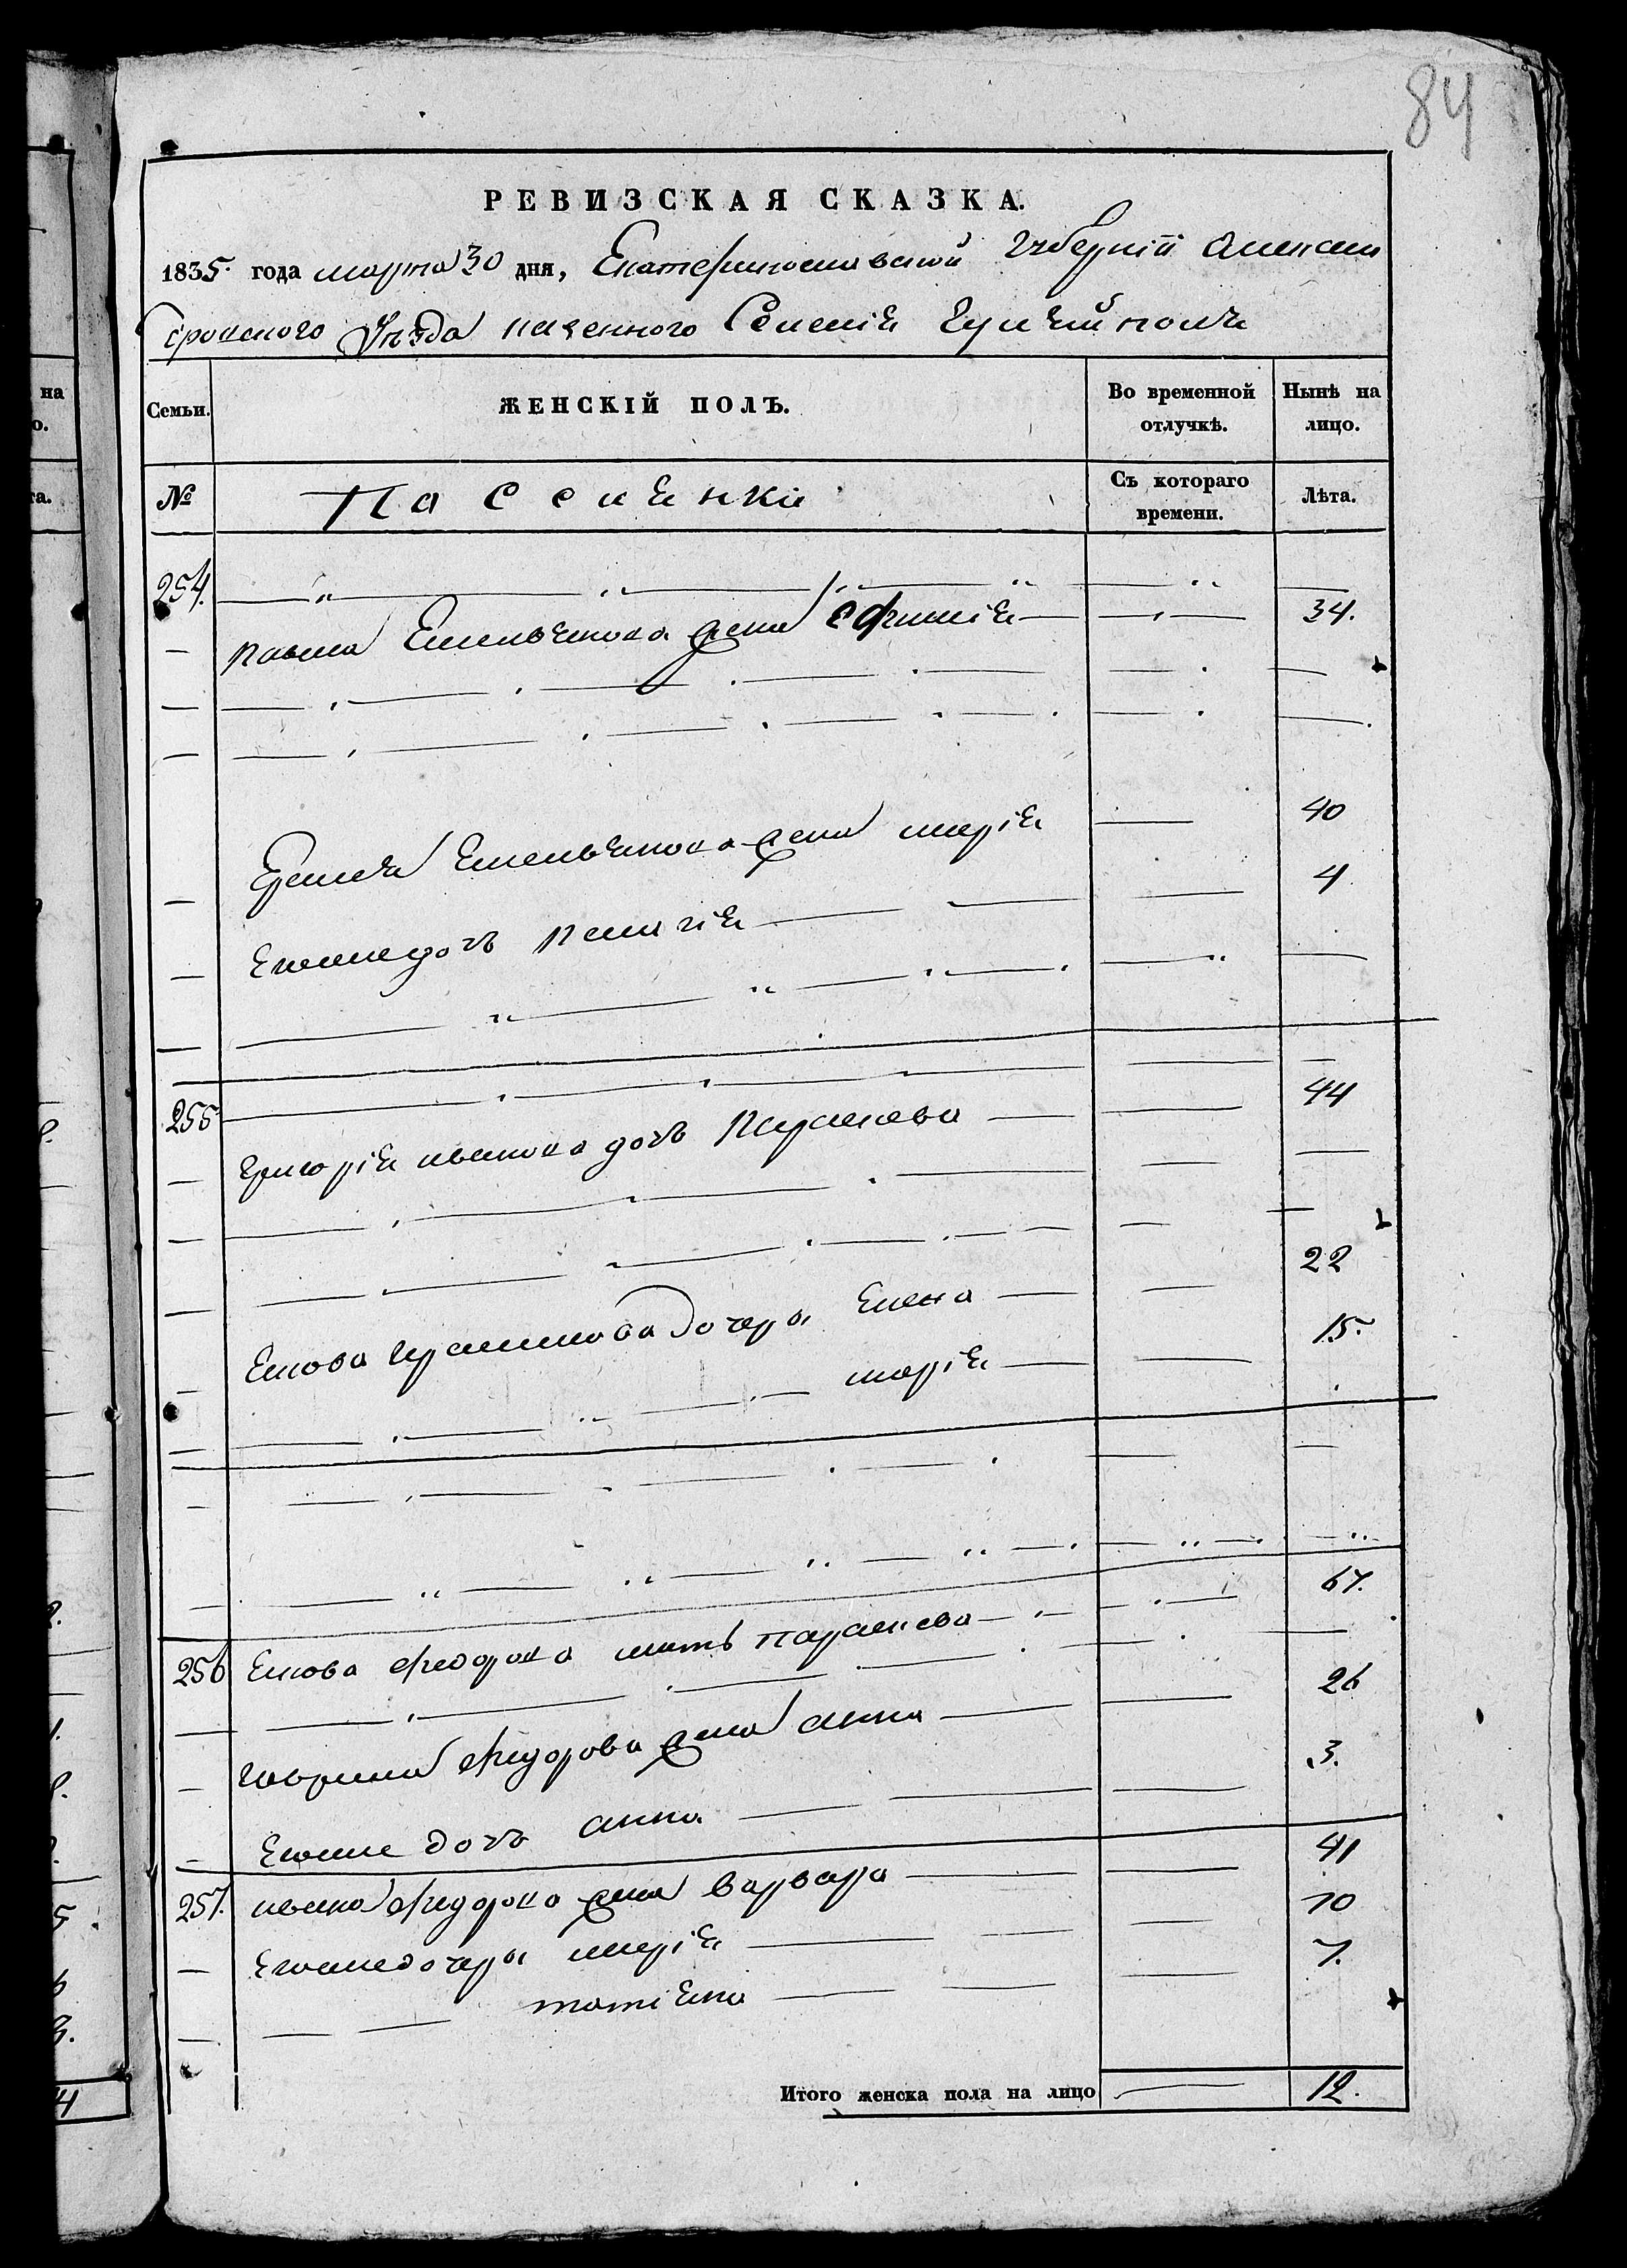 84
РЕВИЗСКАЯ СКАЗКА.
1835. года марта 30 дня, Екатеринославской Губерніи Алексан
дровского Уѣзда казенного Селенія Гуляйполя
Семьи.
ЖЕНСКІЙ ПОЛЪ.
Во временной отлучкѣ.
Нынѣ на лицо.
№
Поселянки
Съ котораго времени.
Лѣта.
254.
Павла Емельянова жена Ефимія 34.
Емельянова жена марія 40
Егоже дочь Пелагія 4
255
Григорія иванова дочь Параскева 44
22
Якова дочери Елена
марія 15.
256 Якова Федорова мать параскева 67.
Гаврила Федорова жена анна 26
Егоже дочь анна 3.
257. ивана Федорова жена Варвара 41
Егоже дочери марія 10
татіяна 7.
Итого женска пола на лицо 12.